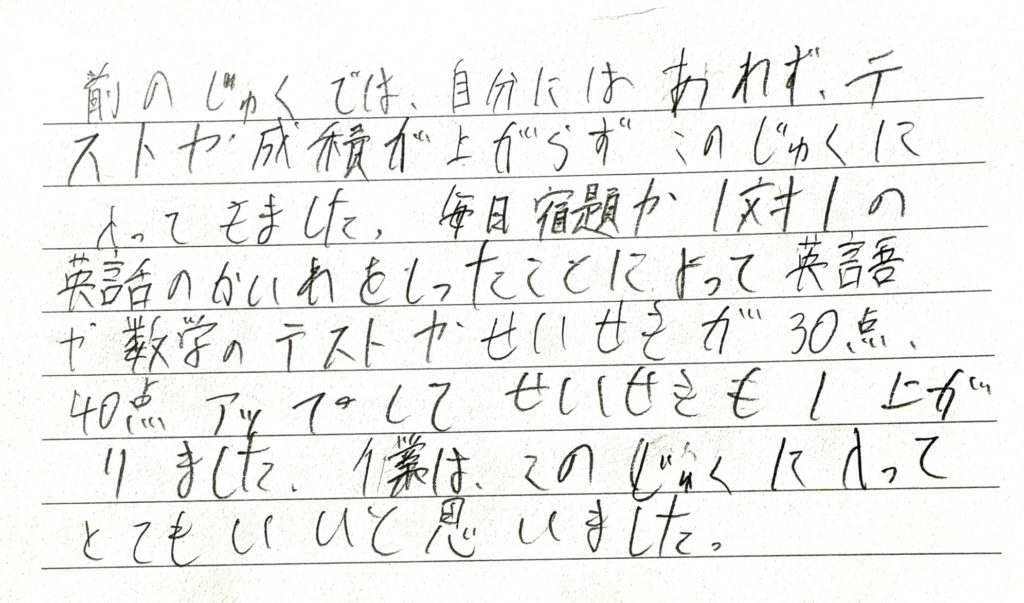 前のじゅくでは、自分にはあわず、テ
ストや成積が上がらず このじゅくに
入ってきました。毎日宿題か1対1の
英話のかいわをしったことによって英語
や数学のテストやせいせきが30点、
40点アップしてせいせきも1上が
りました。僕は、このじゅくに入って
とてもいいと思いました。